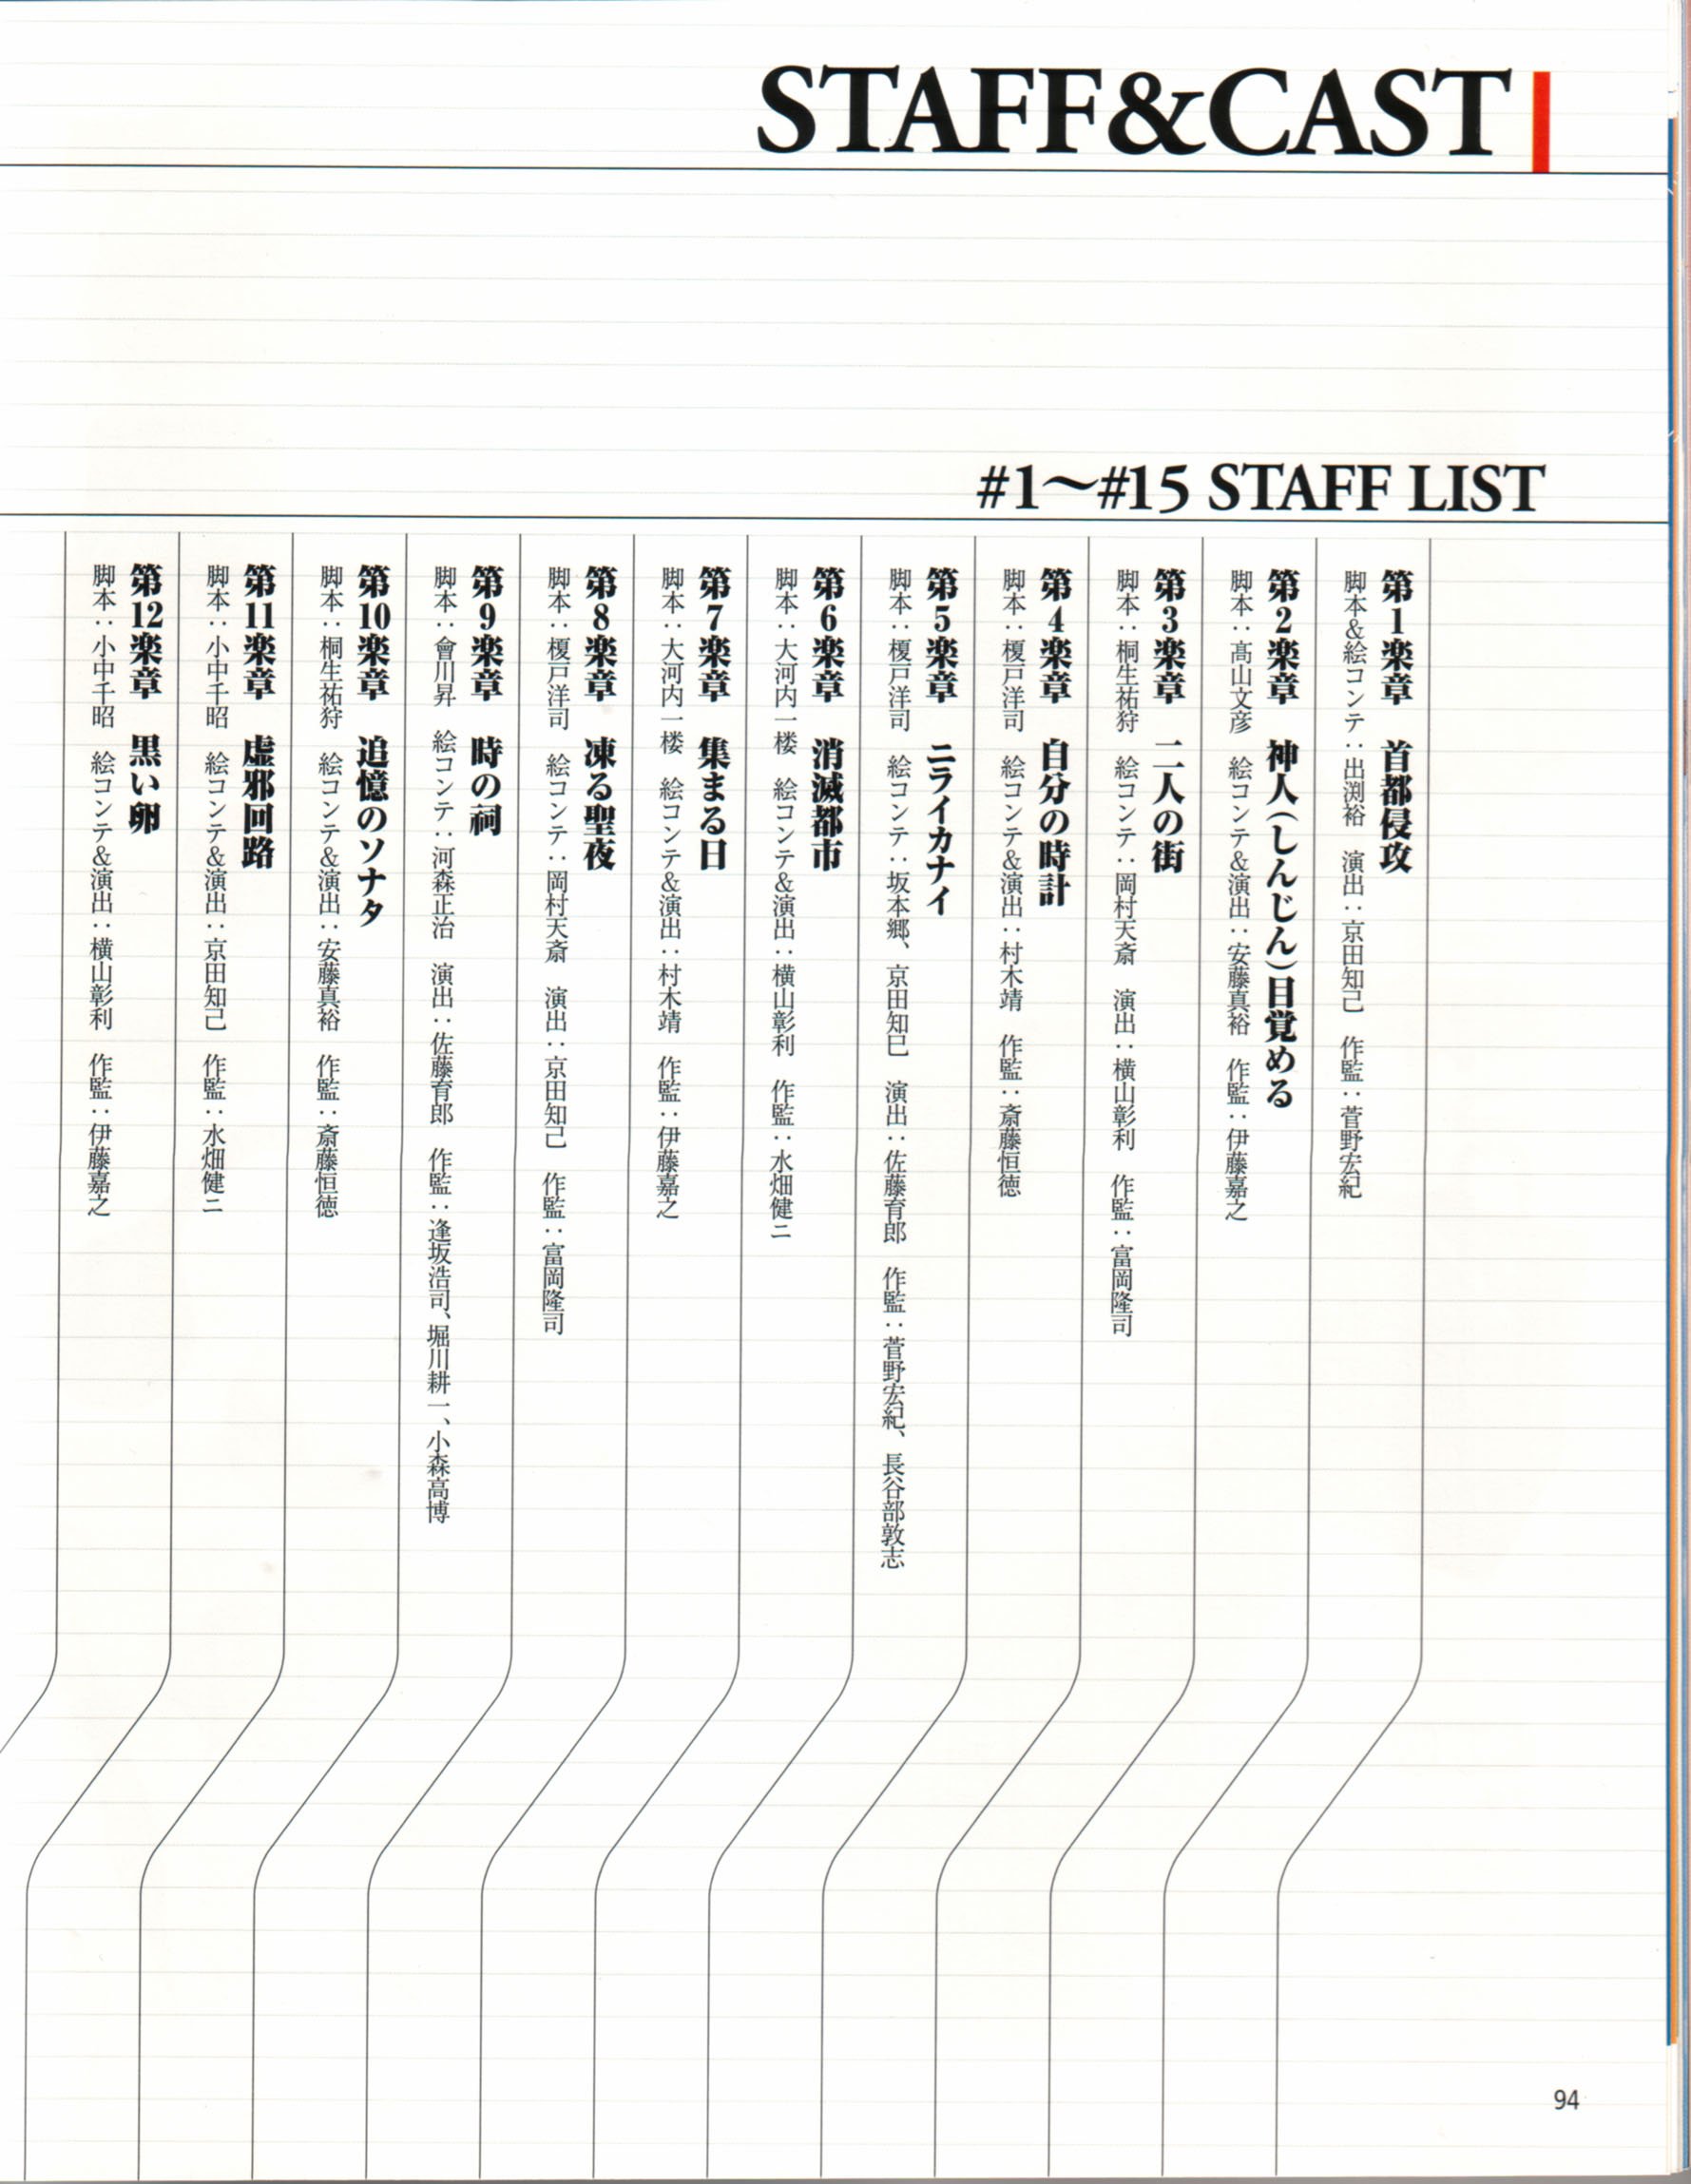 STAFF&CAST
#1〜#15 STAFF LIST
第1楽章　首都侵攻
脚本&絵コンテ：出渕裕　演出：京田知己　作監：菅野宏紀
第2楽章　神人(しんじん)目覚める
脚本：髙山文彦　絵コンテ&演出：安藤真裕　作監：伊藤嘉之
第3楽章　二人の街
脚本：桐生祐狩　絵コンテ：岡村天斎　演出：横山彰利　作監：富岡隆司
第4楽章　自分の時計
脚本：榎戸洋司　絵コンテ&演出：村木靖　作監：斎藤恒徳
第5楽章　ニライカナイ
脚本：榎戸洋司　絵コンテ：坂本郷、京田知巳　演出：佐藤育郎　作監：菅野宏紀、長谷部敦志
第6楽章　消滅都市
脚本：大河内一楼　絵コンテ&演出：横山彰利　作監：水畑健二
第7楽章　集まる日
脚本：大河内一楼　絵コンテ&演出：村木靖　作監：伊藤嘉之
第8楽章　凍る聖夜
脚本：榎戸洋司　絵コンテ：岡村天斎　演出：京田知己　作監：富岡隆司
第9楽章　時の祠
脚本：會川昇　絵コンテ：河森正治　演出：佐藤育郎　作監：逢坂浩司、堀川耕一、小森高博
第10楽章　追憶のソナタ
脚本：桐生祐狩　絵コンテ&演出：安藤真裕　作監：斎藤恒徳
第11楽章　虚邪回路
脚本：小中千昭　絵コンテ&演出：京田知己　作監：水畑健二
第12楽章　黒い卵
脚本：小中千昭　絵コンテ&演出：横山彰利　作監：伊藤嘉之
94